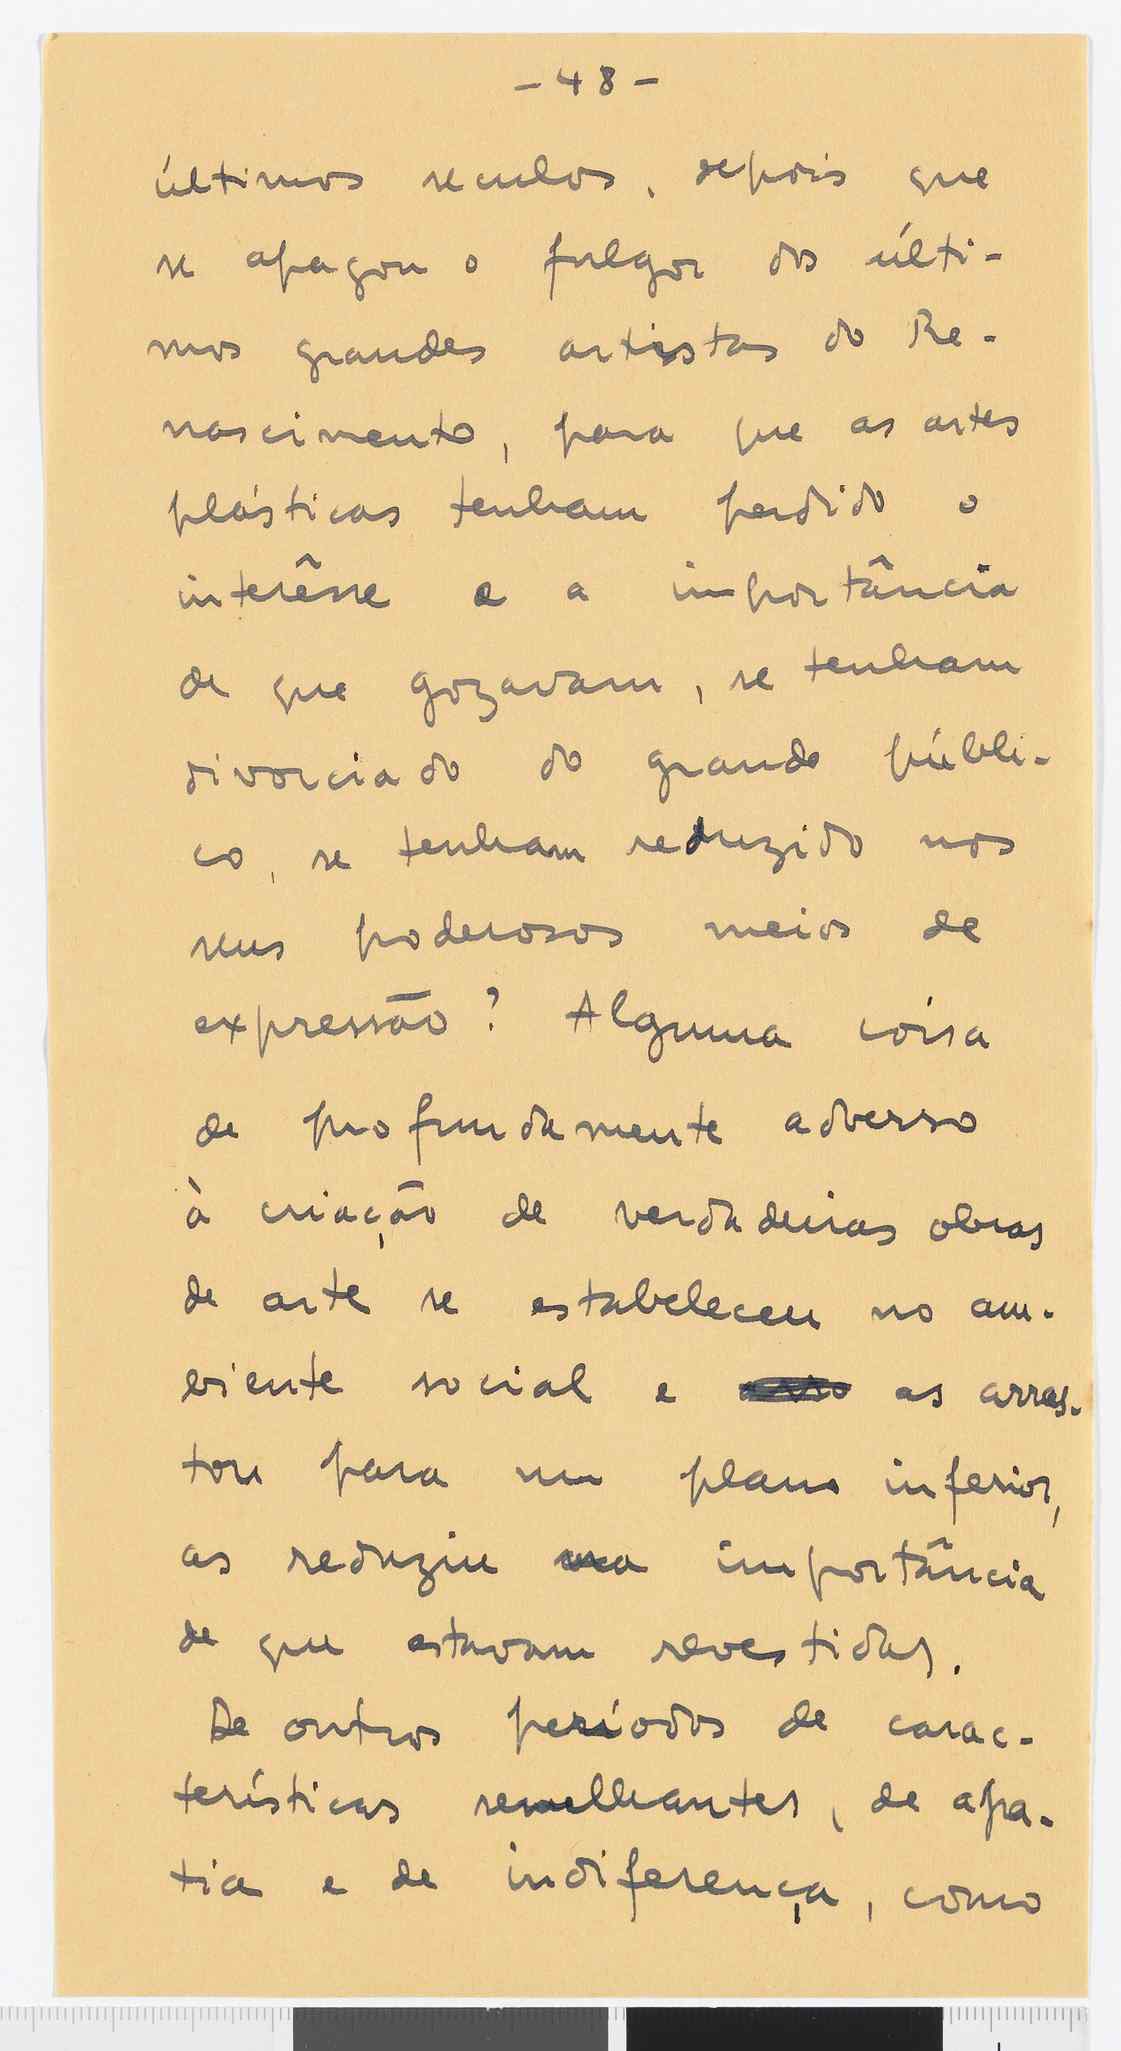 - 48 -
últimos seculos, depois que
se apagou o fulgor dos últi-
mos grandes artistas do Re-
nascimento, para que as artes
plásticas tenham perdido o
interêsse e a importância
de que gozavam, se tenham
divorciado do grande públi-
co, se tenham reduzido nos
seus poderosos meios de
expressão? Alguma coisa
de profundamente adverso
à criação de verdadeiras obras
de arte se estabeleceu no am-
biente social e as arras-
tou para um plano inferior,
as reduziu na importância
de que estavam revestidas.
De outros períodos de carac-
terísticas semelhantes, de apa-
tia e de indiferença, como